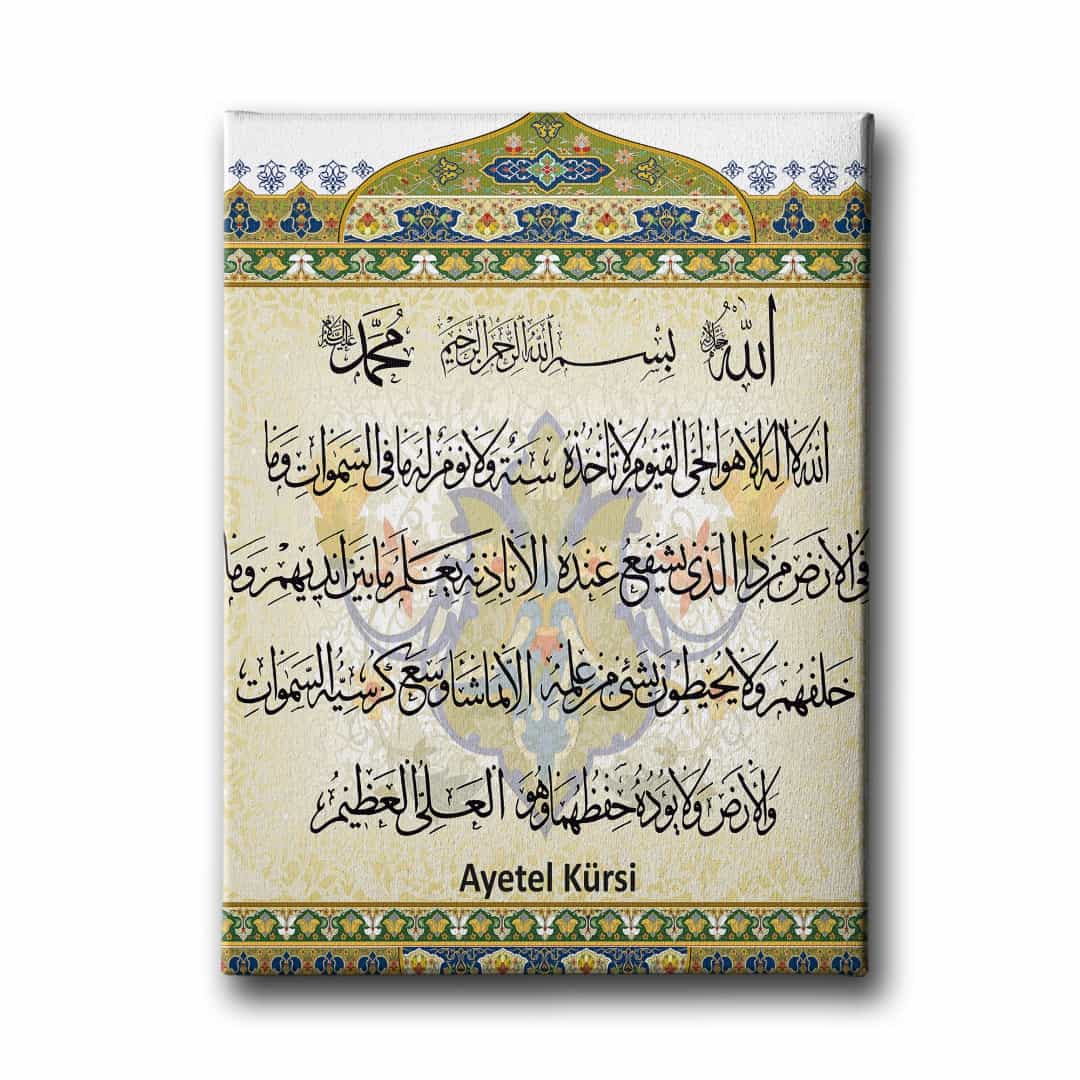 الله جل جلاله بسم الله الرحمن الرحيم محمد عليه السلام
الله لا اله الا هو الحى القيوم لا تأخذه سنة ولا نوم له ما فى السموات وما
فى الارض من ذا الذى يشفع عنده الا باذنه يعلم ما بين ايديهم وما
خلفهم ولا يحيطون بشئ من علمه الا بما شا وسع كرسيه السموات
والارض ولا يؤده حفظهما وهو العلى العظيم
Ayetel Kürsi